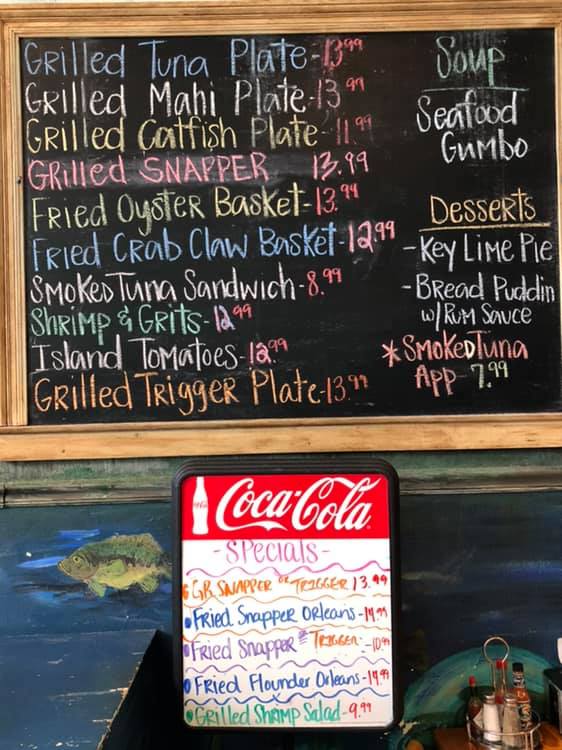 Grilled Tuna Plate-13.99
Grilled Mahi Plate-13.99
Grilled Catfish Plate-11.99
GRilled SNAPPER 13.99
FRied Oyster Basket-13.99
FRied Crab Claw Basket-12.99
SMoKeD Tuna Sandwich-8.99
Shrimp & Grits-12.99
Island Tomatoes-12.99
GRilled TRIGGER Plate-13.99
Soup
Seafood
Gumbo
Desserts
-Key Lime Pie
-Bread Puddin
w/Rum Sauce
*SmoKeDTuna
App-7.99
Coca-Cola
-SPecials-
GR. SNAPPER or TRIGGER 13.99
Fried Snapper Orleans-14.99
Fried Snapper TRIGGER-10.99
Fried Flounder Orleans-14.99
Grilled Shrimp Salad-9.99